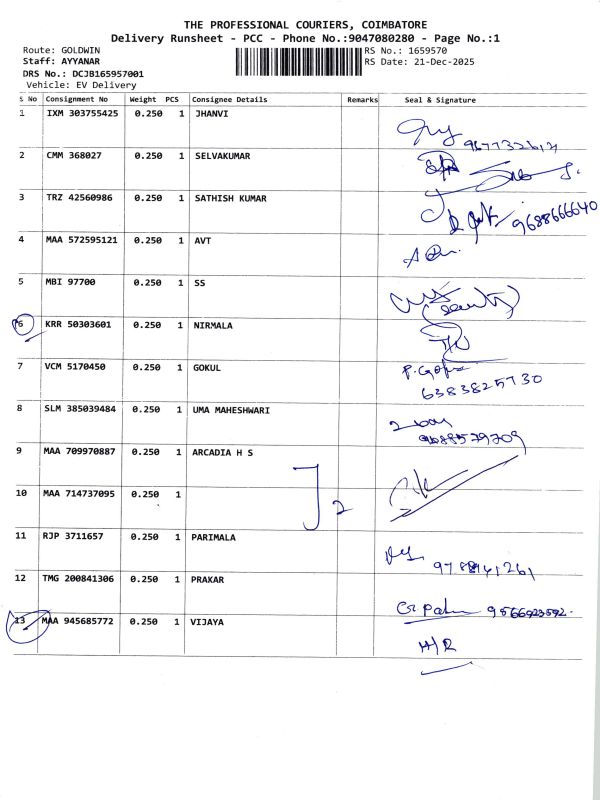 THE PROFESSIONAL COURIERS, COIMBATORE
Delivery Runsheet - PCC - Phone No.:9047080280 - Page No.:1
Route: GOLDWIN RS No.: 1659570
Staff: AYYANAR RS Date: 21-Dec-2025
DRS No.: DCJB165957001
Vehicle: EV Delivery
S No Consignment No Weight PCS Consignee Details Remarks Seal & Signature
1 IXM 303755425 0.250 1 JHANVI
2 CMM 368027 0.250 1 SELVAKUMAR
3 TRZ 42560986 0.250 1 SATHISH KUMAR
9688666640
4 MAA 572595121 0.250 1 AVT
5 MBI 97700 0.250 1 SS
6 KRR 50303601 0.250 1 NIRMALA
7 VCM 5170450 0.250 1 GOKUL
6383825730
8 SLM 385039484 0.250 1 UMA MAHESHWARI
9 MAA 709970887 0.250 1 ARCADIA H S
10 MAA 714737095 0.250 1
2
11 RJP 3711657 0.250 1 PARIMALA
12 TMG 200841306 0.250 1 PRAKAR
13 MAA 945685772 0.250 1 VIJAYA